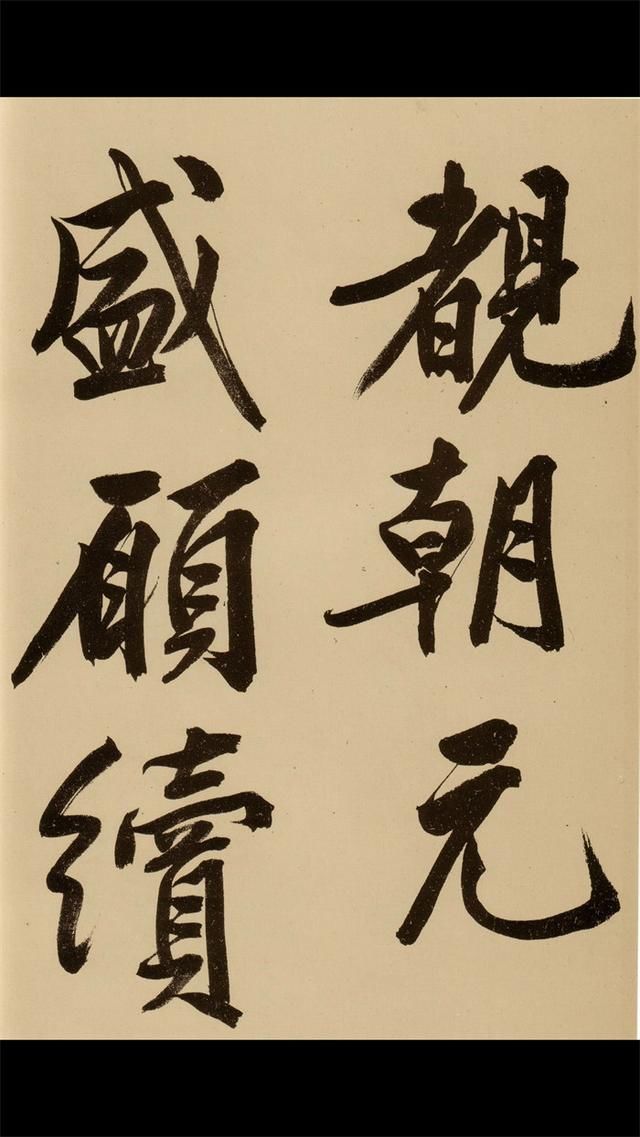 覩朝元
盛願續